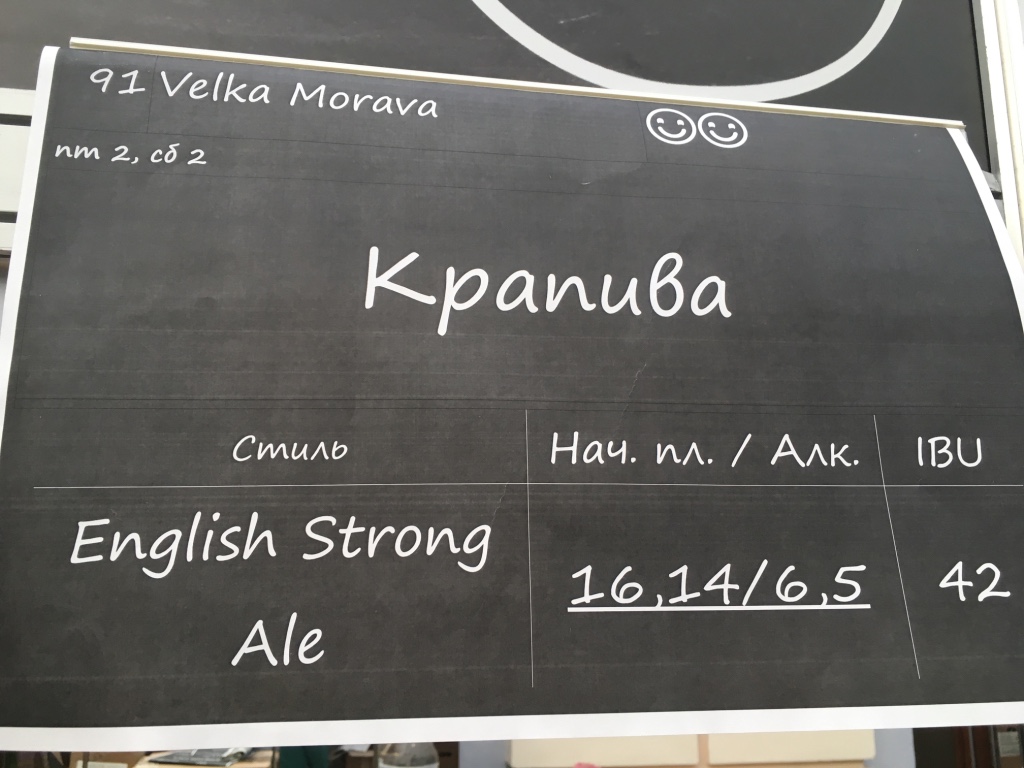 91 Velka Morava
пт 2, сб 2
Крапива
Стиль Нач. пл. / Алк. IBU
English Strong Ale 16,14/6,5 42